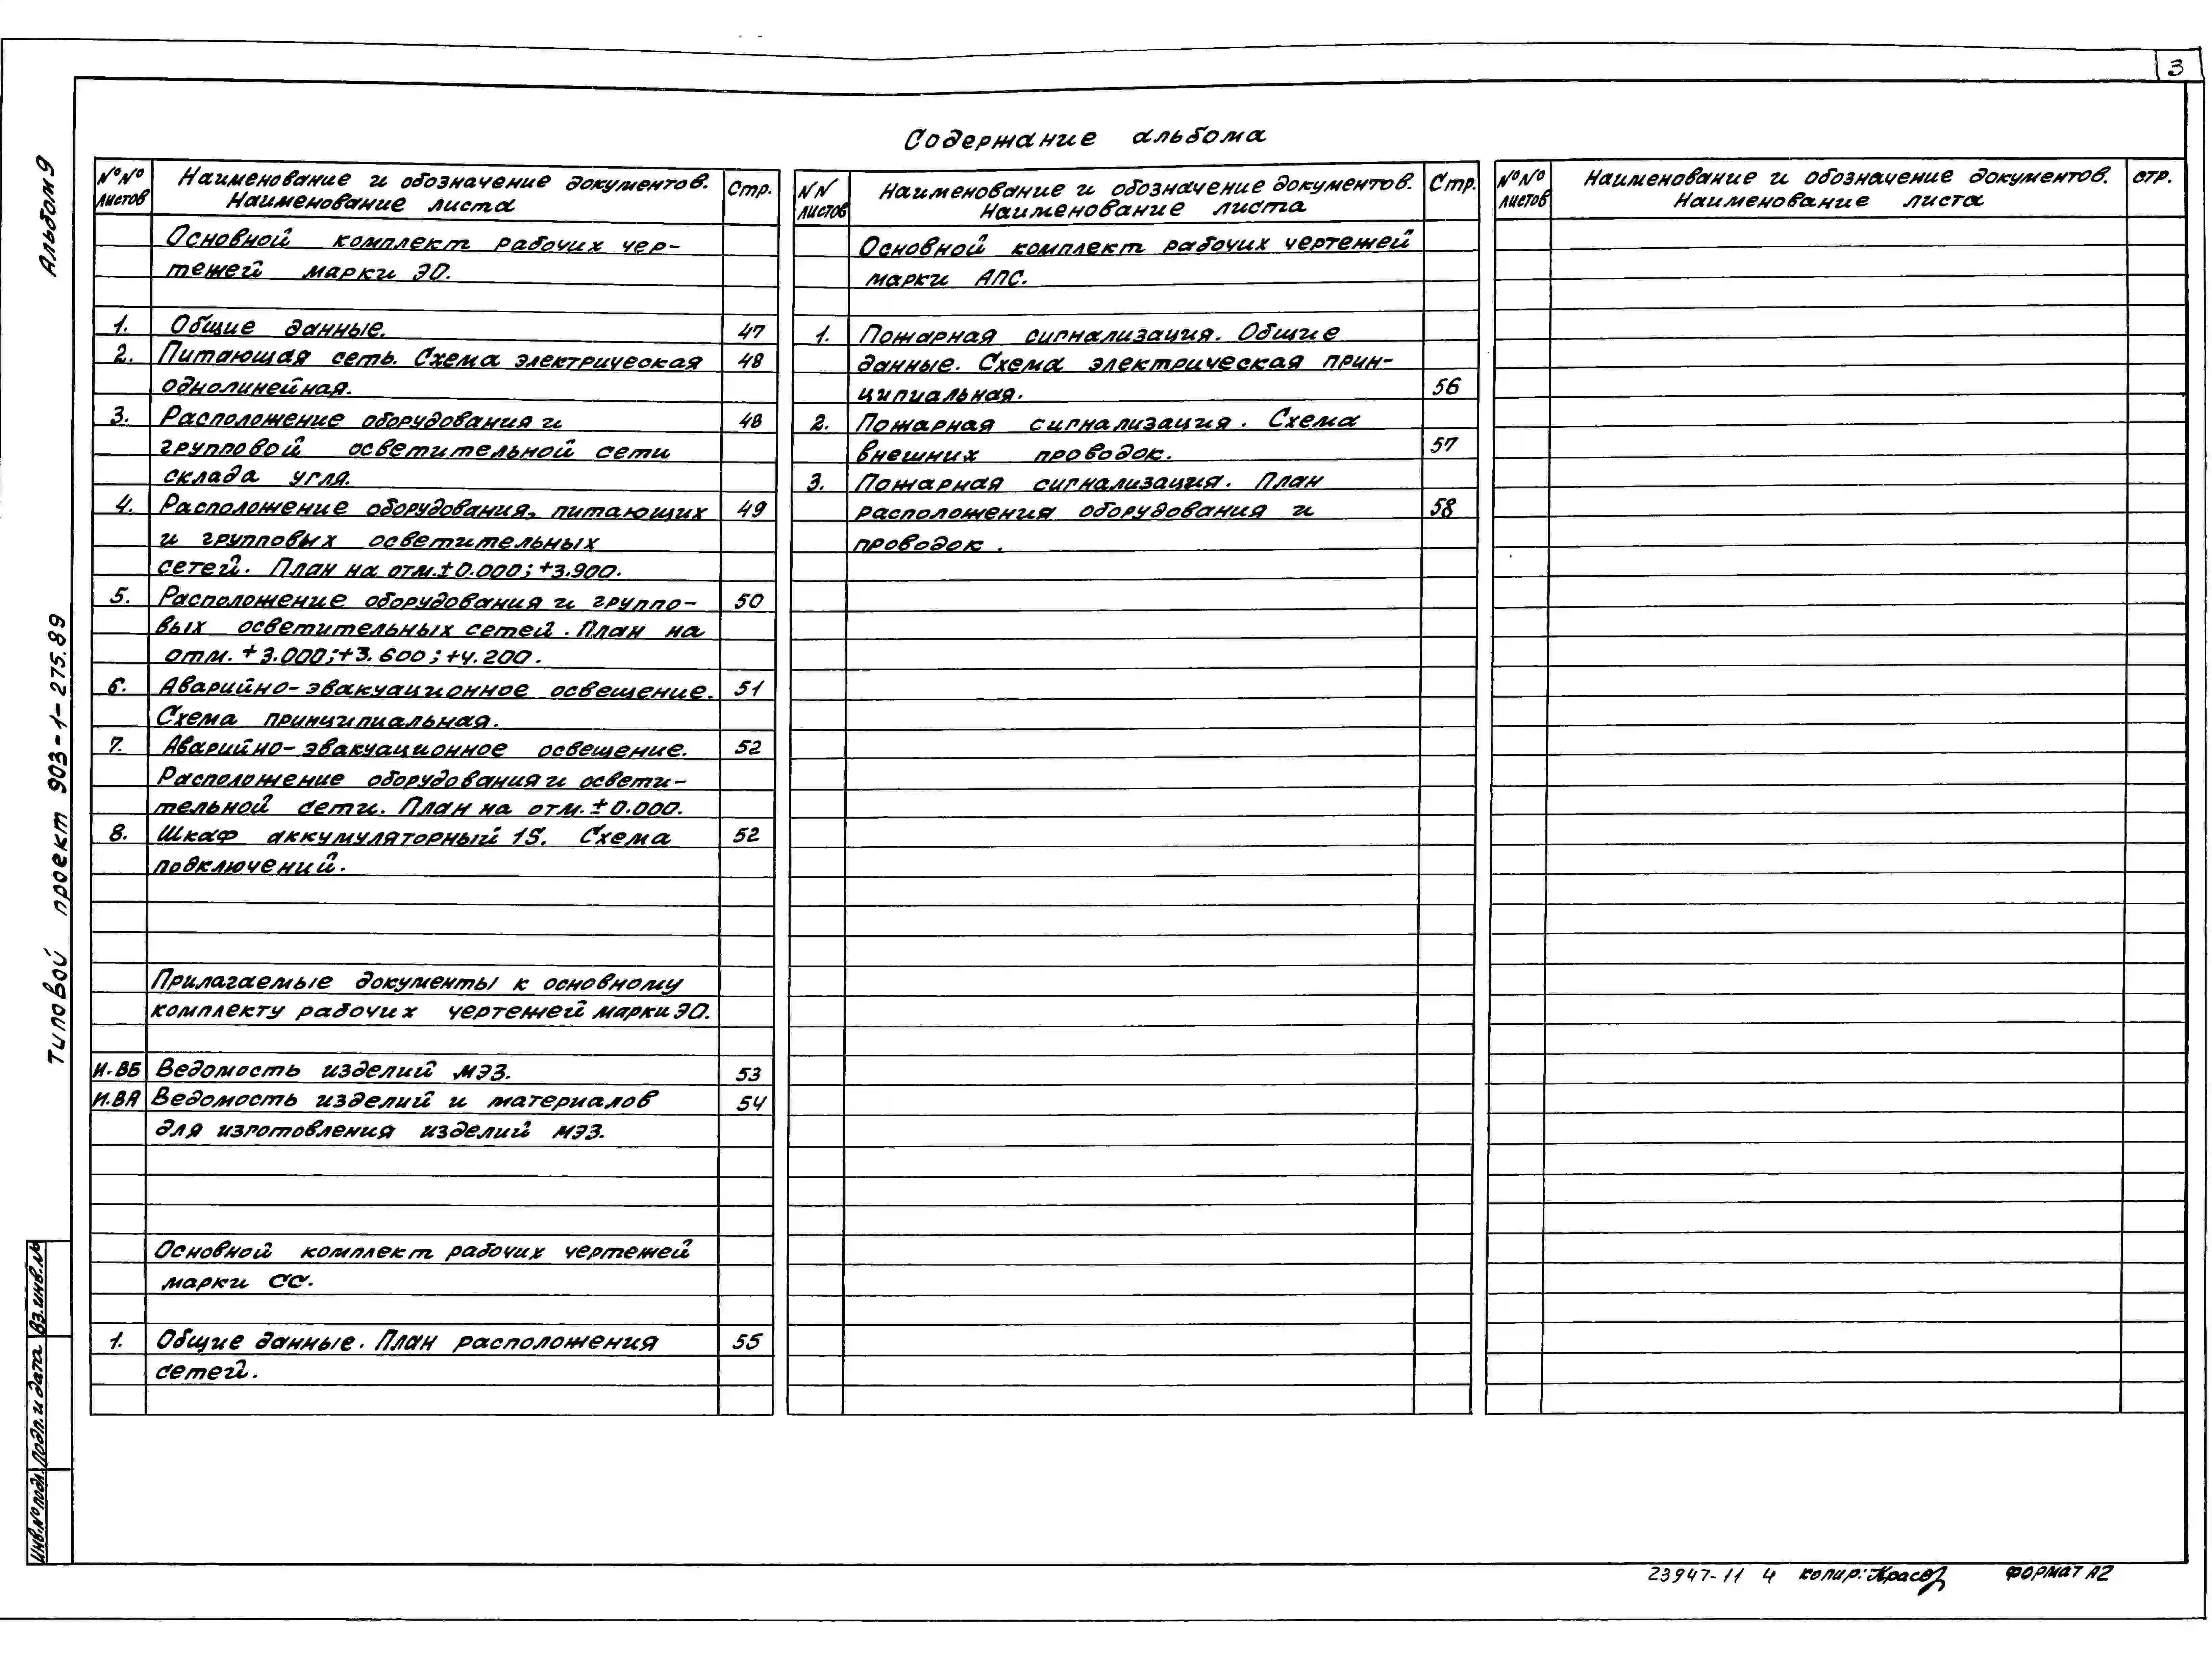 3
Содержание альбома
Альбом 9
Типовой проект 903-1-275.89
№№ листов
Наименование и обозначение документов.
Наименование листа
Стр.
Основной комплект рабочих чер-
тежей марки ЭО.
1. Общие данные. 47
2. Питающая сеть. Схема электрическая 48
однолинейная.
3. Расположение оборудования и 48
групповой осветительной сети
склада угля.
4. Расположение оборудования, питающих 49
и групповых осветительных
сетей. План на отм. ±0.000; +3.900.
5. Расположение оборудования и группо- 50
вых осветительных сетей. План на
отм. +3.000; +3.600; +4.200.
6. Аварийно-эвакуационное освещение. 51
Схема принципиальная.
7. Аварийно-эвакуационное освещение. 52
Расположение оборудования и освети-
тельной сети. План на отм. ±0.000.
8. Шкаф аккумуляторный 1S. Схема 52
подключений.
Прилагаемые документы к основному
комплекту рабочих чертежей марки ЭО.
И.ВБ Ведомость изделий МЭЗ. 53
И.ВА Ведомость изделий и материалов 54
для изготовления изделий МЭЗ.
Основной комплект рабочих чертежей
марки СС.
1. Общие данные. План расположения 55
сетей.
NN листов
Наименование и обозначение документов.
Наименование листа
Стр.
Основной комплект рабочих чертежей
марки АПС.
1. Пожарная сигнализация. Общие
данные. Схема электрическая прин-
ципиальная. 56
2. Пожарная сигнализация. Схема
внешних проводок. 57
3. Пожарная сигнализация. План
расположения оборудования и 58
проводок.
№№ листов
Наименование и обозначение документов.
Наименование листа
стр.
Инв.№ подл. Подп. и дата Вз.инв.№
23947-11 4 копир: ФОРМАТ А2